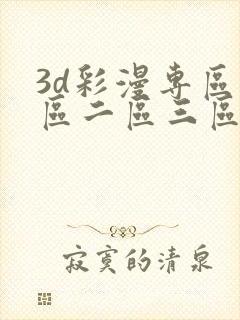 3d彩漫專區
區二區三區
寂寞的清泉